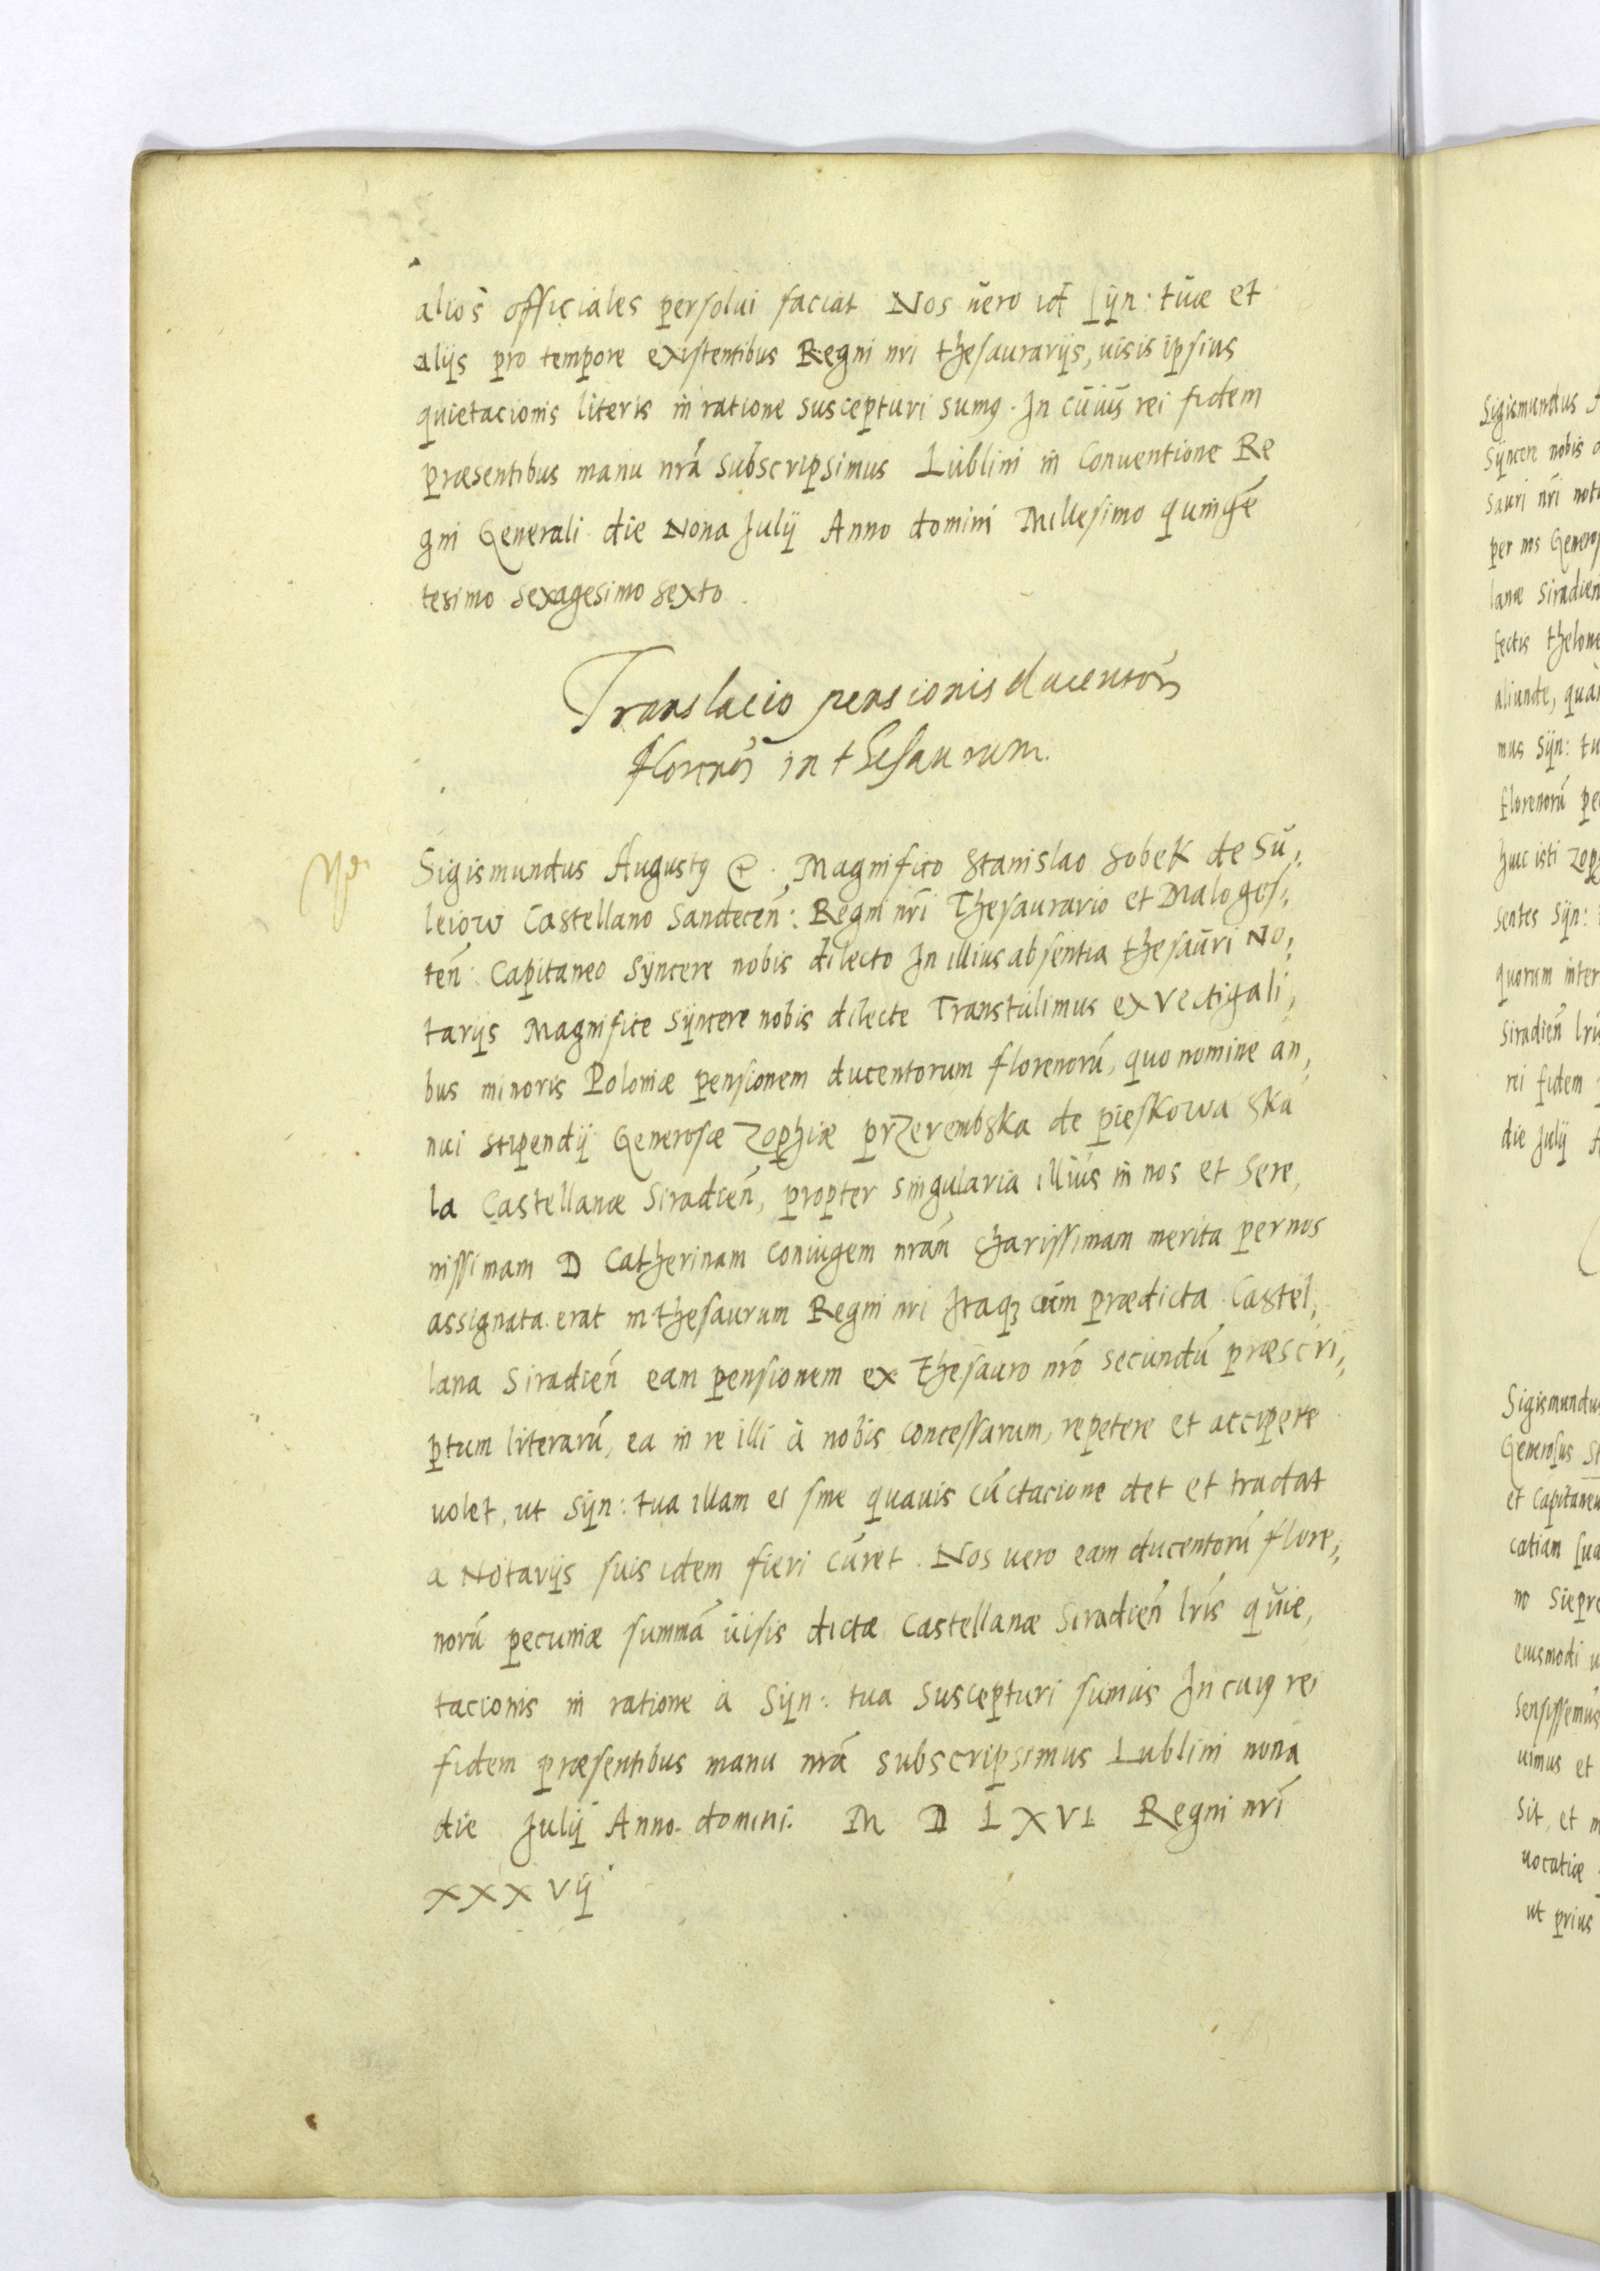 alios officiales persolui faciat Nos uero id Syn: tuæ et
alijs pro tempore existentibus Regni nri thesaurarijs, uisis ipsius
quietacionis literis in ratione suscepturi sumq. In cuius rei fidem
præsentibus manu nrã subscripsimus Lublini in Conuentione Re
gni Generali die Nona Julij Anno domini Millesimo quingẽ
tesimo sexagesimo sexto
Translacio pensionis ducentorũ
florenorũ in thesaurum.
Sigismundus Augustq &c. Magnifico Stanislao Sobek de Su,,
leiow Castellano Sandeceñ: Regni nri Thesaurario et Malogos,,
teñ: Capitaneo Syncere nobis dilecto In illius absentia thesauri No,,
tarijs Magnifice Syncere nobis dilecte Transtulimus ex Vectigali,,
bus minoris Poloniæ pensionem ducentorum florenorũ, quo nomine an,,
nui stipendij Generosæ Zophiæ przerembska de pieskowa ska
la Castellanæ Siradieñ, propter singularia illius in nos et Sere,,
nissimam D Catherinam Coniugem nrãm charissimam merita per nos
assignata erat in thesaurum Regni nri Itaqz cum prædicta Castel,,
lana Siradieñ eam pensionem ex Thesauro nrõ secundũ præscri,,
ptum literarũ, ea in re illi à nobis concessarum, repetere et accipere
uolet, ut Syn: tua illam ei sine quauis cũctacione det et tradat
a Notarijs suis idem fieri curet. Nos uero eam ducentorũ flore,,
norũ pecuniæ summã uisis dictæ Castellanæ Siradieñ lris quie,,
tacionis in ratione à Syn: tua suscepturi sumus In cuiq rei
fidem præsentibus manu nrã subscripsimus Lublini nona
die Julij Anno domini. M D L X V I Regni nri
X X X V ij
Sigismundus
Syncere nobis
sauri nri
per nos
lanæ Siradien
fectis
aliunde,
mus Syn: tu
florenorũ
huc isti
sentes Syn:
quorum inter
Siradieñ
rei fidem
die Julij
Sigismundus
Generosus
et Capitaneu
no
eiusmodi
uimus et
Sit, et
ut prius